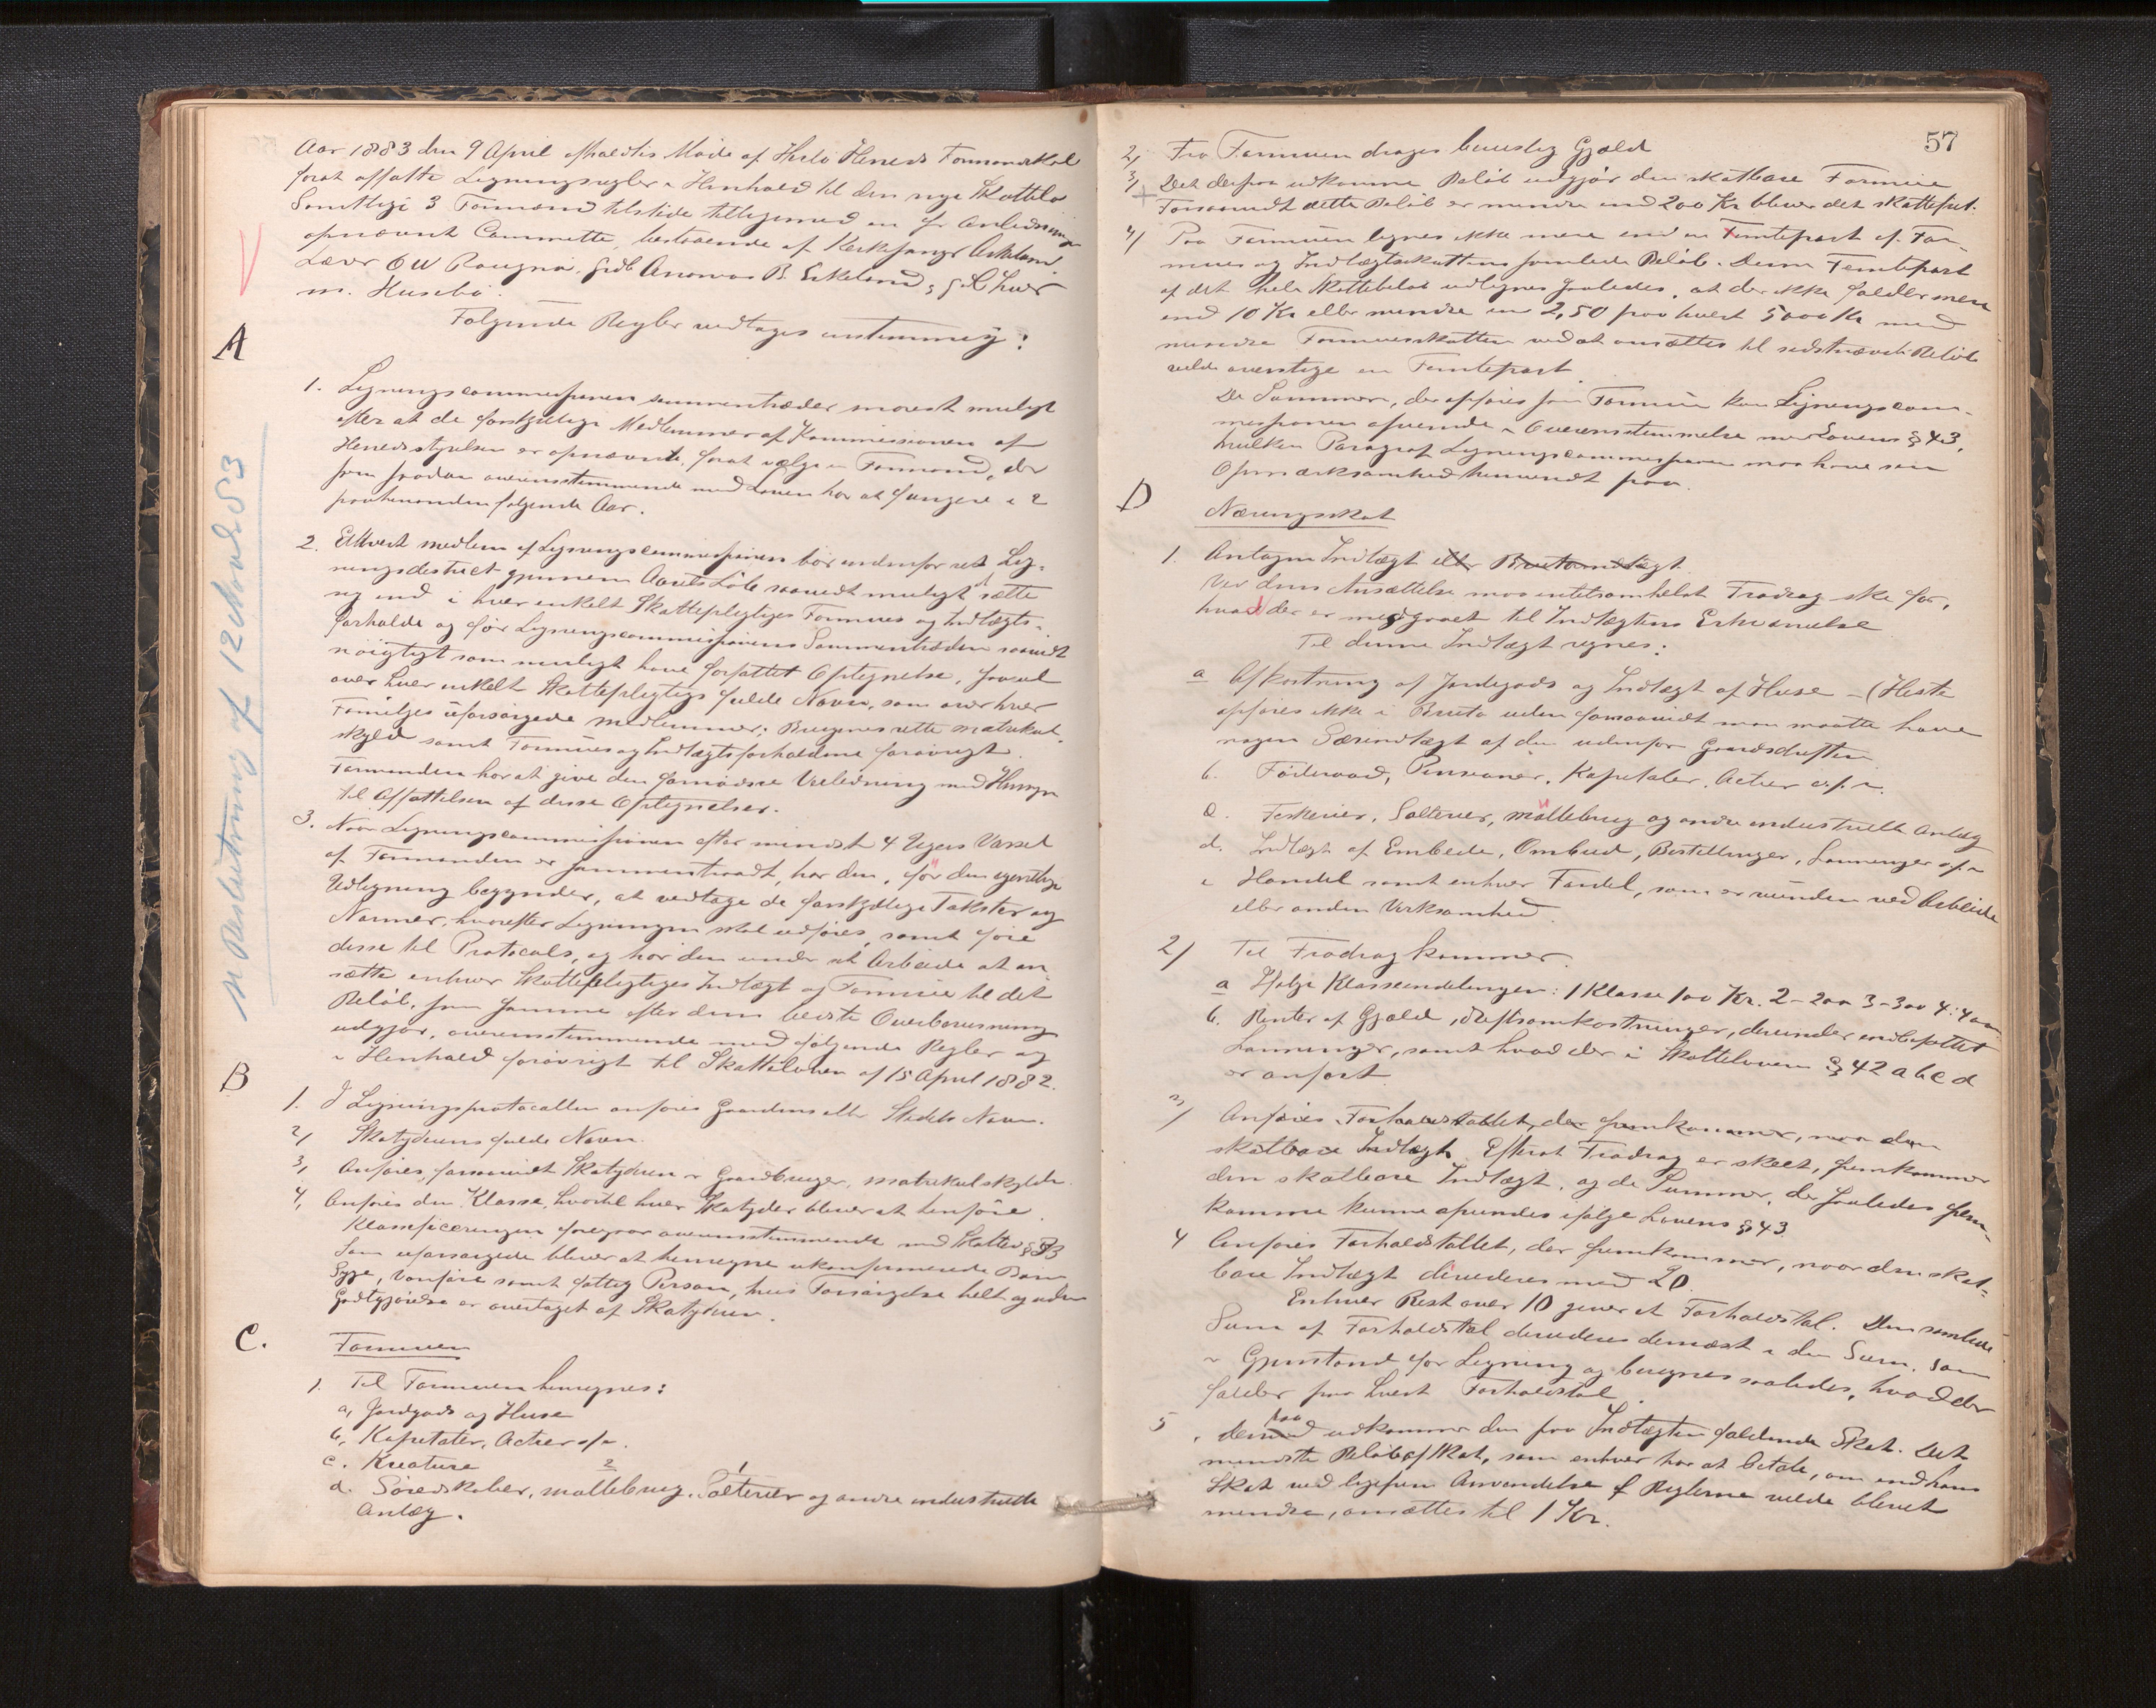 Aar 1883 den 9 April afholdtes Møde af Herlø Herreds Formandskab
forat affatte Ligningsregler i Henhold til den nye Skattelov
Samtlige 3 Formænd tilstede tilligemed en for Anledningen
opnævnt Committe, bestaaende af Kirkesanger Askeland
Lærer O W Rougnø, Grdb. Andreas B. Eskeland, Hver
m. Husebø.
Følgende Regler vedtages enstemmig:
A
1. Ligningscommissionen sammentræder snarest muligt
efter at de forskjellige Medlemmer af Kommissionen af
Herredsstyrelsen er opnævnte, forat vælge en Formand, der
som saadan overensstemmende med Loven har at fungere i 2
paahinanden følgende Aar.
2. Ethvert medlem af Ligningscommissionen bør indenfor sit Lig-
ningsdistrict gjennem Aarets Løb saavidt muligt sætte
sig ind i hver enkelt Skattepligtiges Formues og Indtægts-
forholde og før Ligningscommissionens Sammentræden saavidt
nøigtigt som muligt have forfattet Optegnelse, saavel
over hver enkelt Skattepligtigs fulde Navn, som over hver
Familjes uforsørgede medlemmer; Brugenes rette matrikul-
skyld samt Formues og Indtægtsforholdene forøvrigt.
Formanden har at give den fornødne Veiledning med Hensyn
til Affattelsen af disse Optegnelser.
3. Naar Ligningscommissionen efter mindst 4 Ugers Varsel
af Formanden er sammentraadt, har den, før den egentlige
Udligning begynder, at vedtage de forskjellige Takster og
Normer, hvorefter Ligningen skal udføres, samt føre
disse til Protocols, og har den under sit Arbeide at an-
sætte enhver Skattepligtiges Indtægt og Formue til det
Beløb, som samme efter dens bedste Overbevisning
udgjør, overensstemmende med følgende Regler og
i Henhold forøvrigt til Skatteloven af 15 April 1882.
B
1. I Ligningsprotocollen anføres Gaardens eller Stedets Navn.
2) Skatyderens fulde Navn.
3, Anføres, forsaavidt Skatyderen er Gaardbruger, matrikulskylden.
4, Anføres den Klasse, hvortil hver Skatyder bliver at henføre.
Klassificeringen foregaar overensstemmende med Skattel. § 33
Som uforsørgede bliver at henregne ukonfirmerede Børn
Syge, Vanføre samt fattig Person, hvis Forsørgelse helt og uden
Godtgjørelse er overtaget af Skatyderen.
C.
Formuen
1. Til Formuen henregnes:
a, Jordgods og Huse
b, Kapitaler, Actier o s v.
c. Kreature
d. Søredskaber, møllebrug, Salterier og andre industrielle
Anlæg.
N Beslutning af 12 Octobr 83
57
2, Fra Formuen drages beviislig Gjæld
3, Det derpaa udkomne Beløb udgjør den skatbare Formue
Forsaavidt dette Beløb er mindre end 200 Kr bliver det skattefrit.
4) Paa Formuen lignes ikke mere end en Femtepart af For-
mues og Indtægtsskattens samlede Beløb. Denne Femtepart
af det hele Skattebeløb udlignes saaledes, at der ikke falder mere
end 10 Kr eller mindre en 2,50 paa hvert 5000 Kr med
mindre Formuesskatten ved at ansættes til sidstnævnte Beløb
vilde overstige en Femtepart
De Summer, der opføres som Formue kan Ligningscom-
missionen afrunde i Overensstemmelse med Lovens § 43,
hvilken Paragraf Ligningscommissionen maa have sin
Opmærksomhed henvendt paa.
D
Næringsskat
1. Antagen Indtægt eller Bruttoindtægt.
Ved dens Ansættelse maa intetsomhelst Fradrag ske for,
hvad der er medgaaet til Indtægtens Erhvervelse
Til denne Indtægt regnes:
a Afkastning af Jordegods og Indtægt af Huse – (Heste
opføres ikke i Brutto uden forsaavidt man maatte have
nogen Særindtægt af den udenfor Gaardsdriften
b. Føderaad, Pensioner, Kapitaler, Actier o s v.
c. Fiskerier, Salterier, møllebrug og andre industrielle Anlæg
d. Indtægt af Embede, Ombud, Bestillinger, Lønninger o s v
e Handel samt enhver Fordel, som er vunden ved Arbeide
eller anden Virksomhed.
2) Til Fradrag kommer.
a Ifølge Klasseindelingen: 1 Klasse 100 Kr. 2 – 200 3 – 300 4: 400
b. Renter af Gjæld, Driftsomkostninger, derunder indbefattet
Lønninger, samt hvad der i Skatteloven § 42 a b c d
er anført
3) Anføres Forholdstallet, der fremkommer, naar den
skatbare Indtægt. Efterat Fradrag er skeet, fremkommer
den skatbare Indtægt, og de Summer, der saaledes frem-
komme kunne afrundes ifølge Lovens § 43
4 Anføres Forholdstallet, der fremkommer, naar den skat-
bare Indtægt divideres med 20.
Enhver Rest over 10 giver et Forholdstal. Den samlede
Sum af Forholdstal divideres dernæst i den Sum, som
er Gjenstand for Ligning og beregnes saaledes, hvad der
falder paa hvert Forholdstal.
5. Herpaa udkommer den paa Indtægten faldende Skat. Det
mindste Beløb af Skat, som enhver har at betale, om end hans
Skat ved ligefrem Anvendelse af Reglerne vilde blevet
mindre, ansættes til 1 Kr.